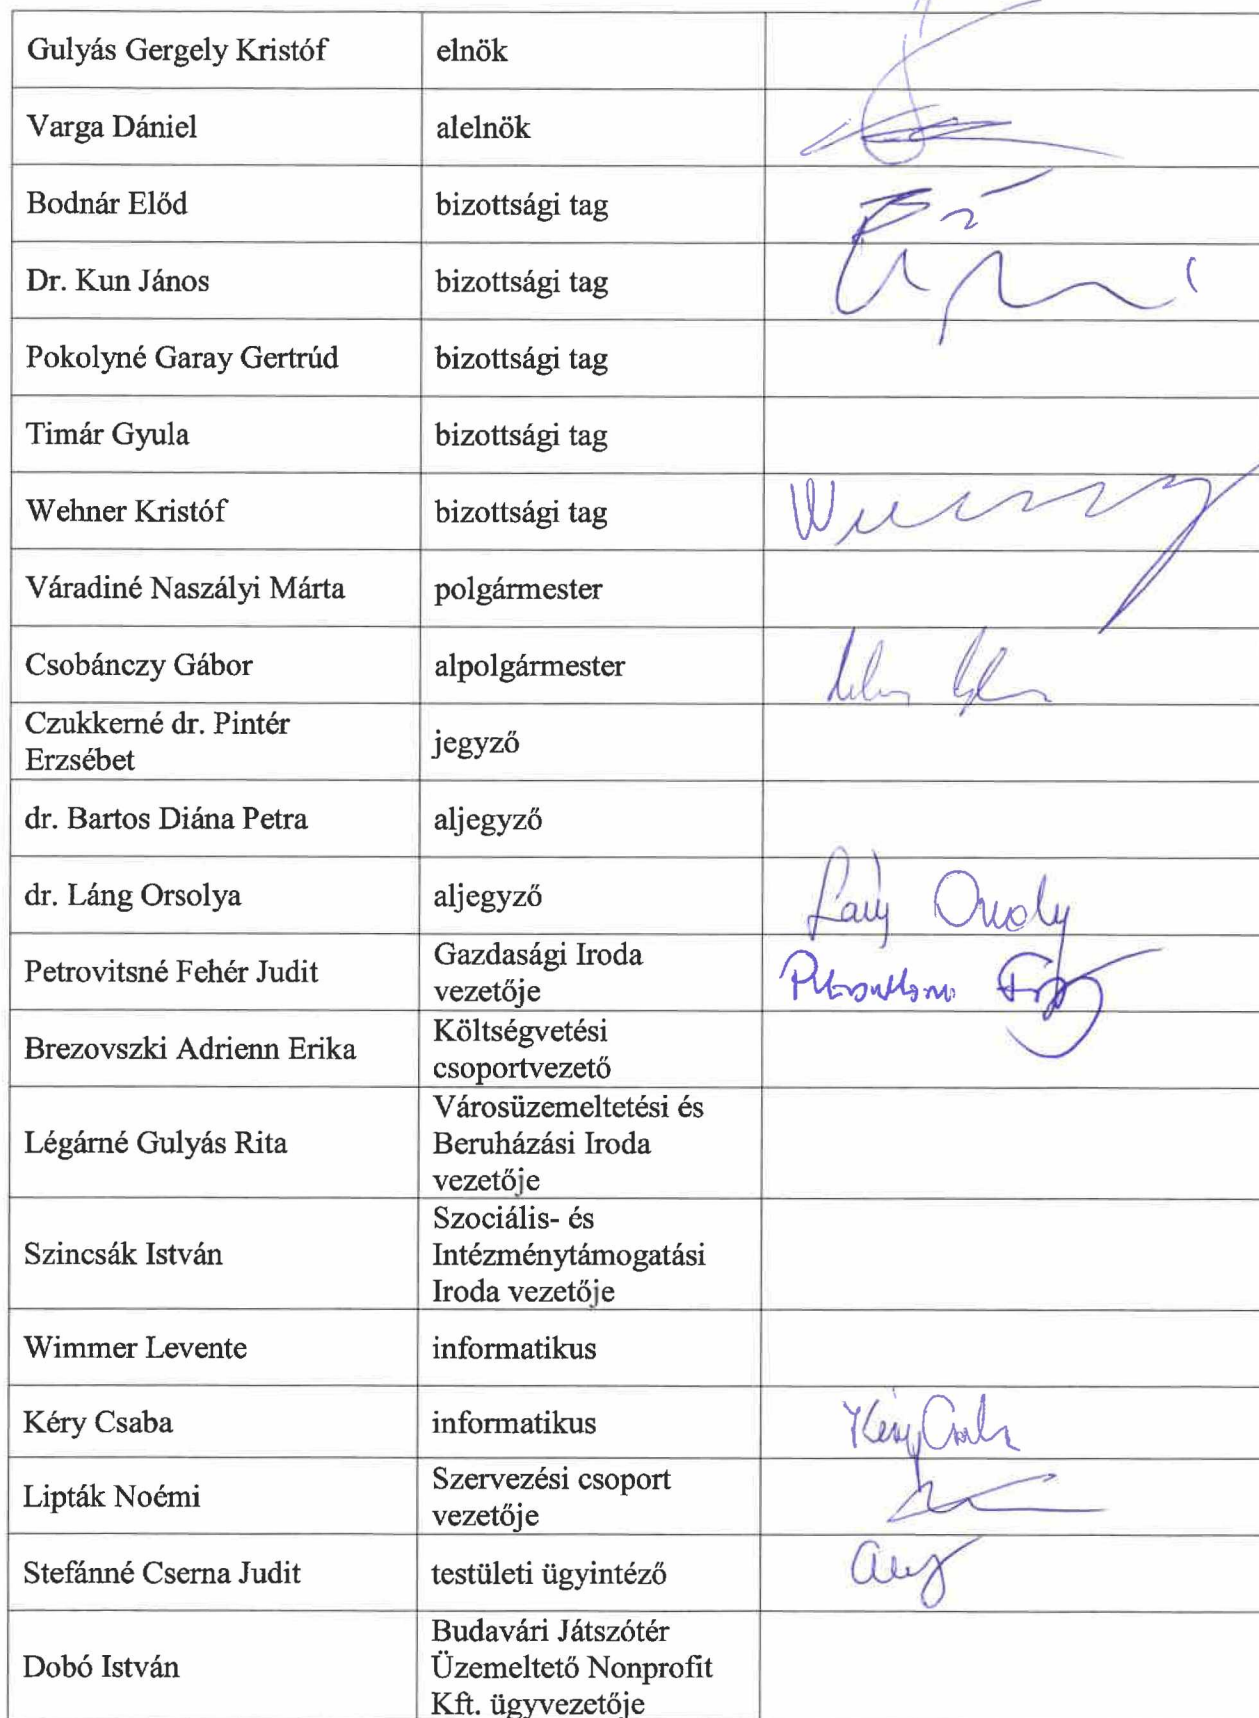 Gulyás Gergely Kristóf
elnök
Varga Dániel
alelnök
Bodnár Előd
bizottsági tag
Dr. Kun János
bizottsági tag
Pokolyné Garay Gertrúd
bizottsági tag
Timár Gyula
bizottsági tag
Wehner Kristóf
bizottsági tag
Váradiné Naszályi Márta
polgármester
Csobánczy Gábor
alpolgármester
Czukkerné dr. Pintér
Erzsébet
jegyző
dr. Bartos Diána Petra
aljegyző
dr. Láng Orsolya
aljegyző
Petrovitsné Fehér Judit
Gazdasági Iroda
vezetője
Brezovszki Adrienn Erika
Költségvetési
csoportvezető
Légárné Gulyás Rita
Városüzemeltetési és
Beruházási Iroda
vezetője
Szincsák István
Szociális- és
Intézménytámogatási
Iroda vezetője
Wimmer Levente
informatikus
Kéry Csaba
informatikus
Kéry Csaba
Lipták Noémi
Szervezési csoport
vezetője
Stefánné Cserna Judit
testületi ügyintéző
Dobó István
Budavári Játszótér
Üzemeltető Nonprofit
Kft. ügyvezetője